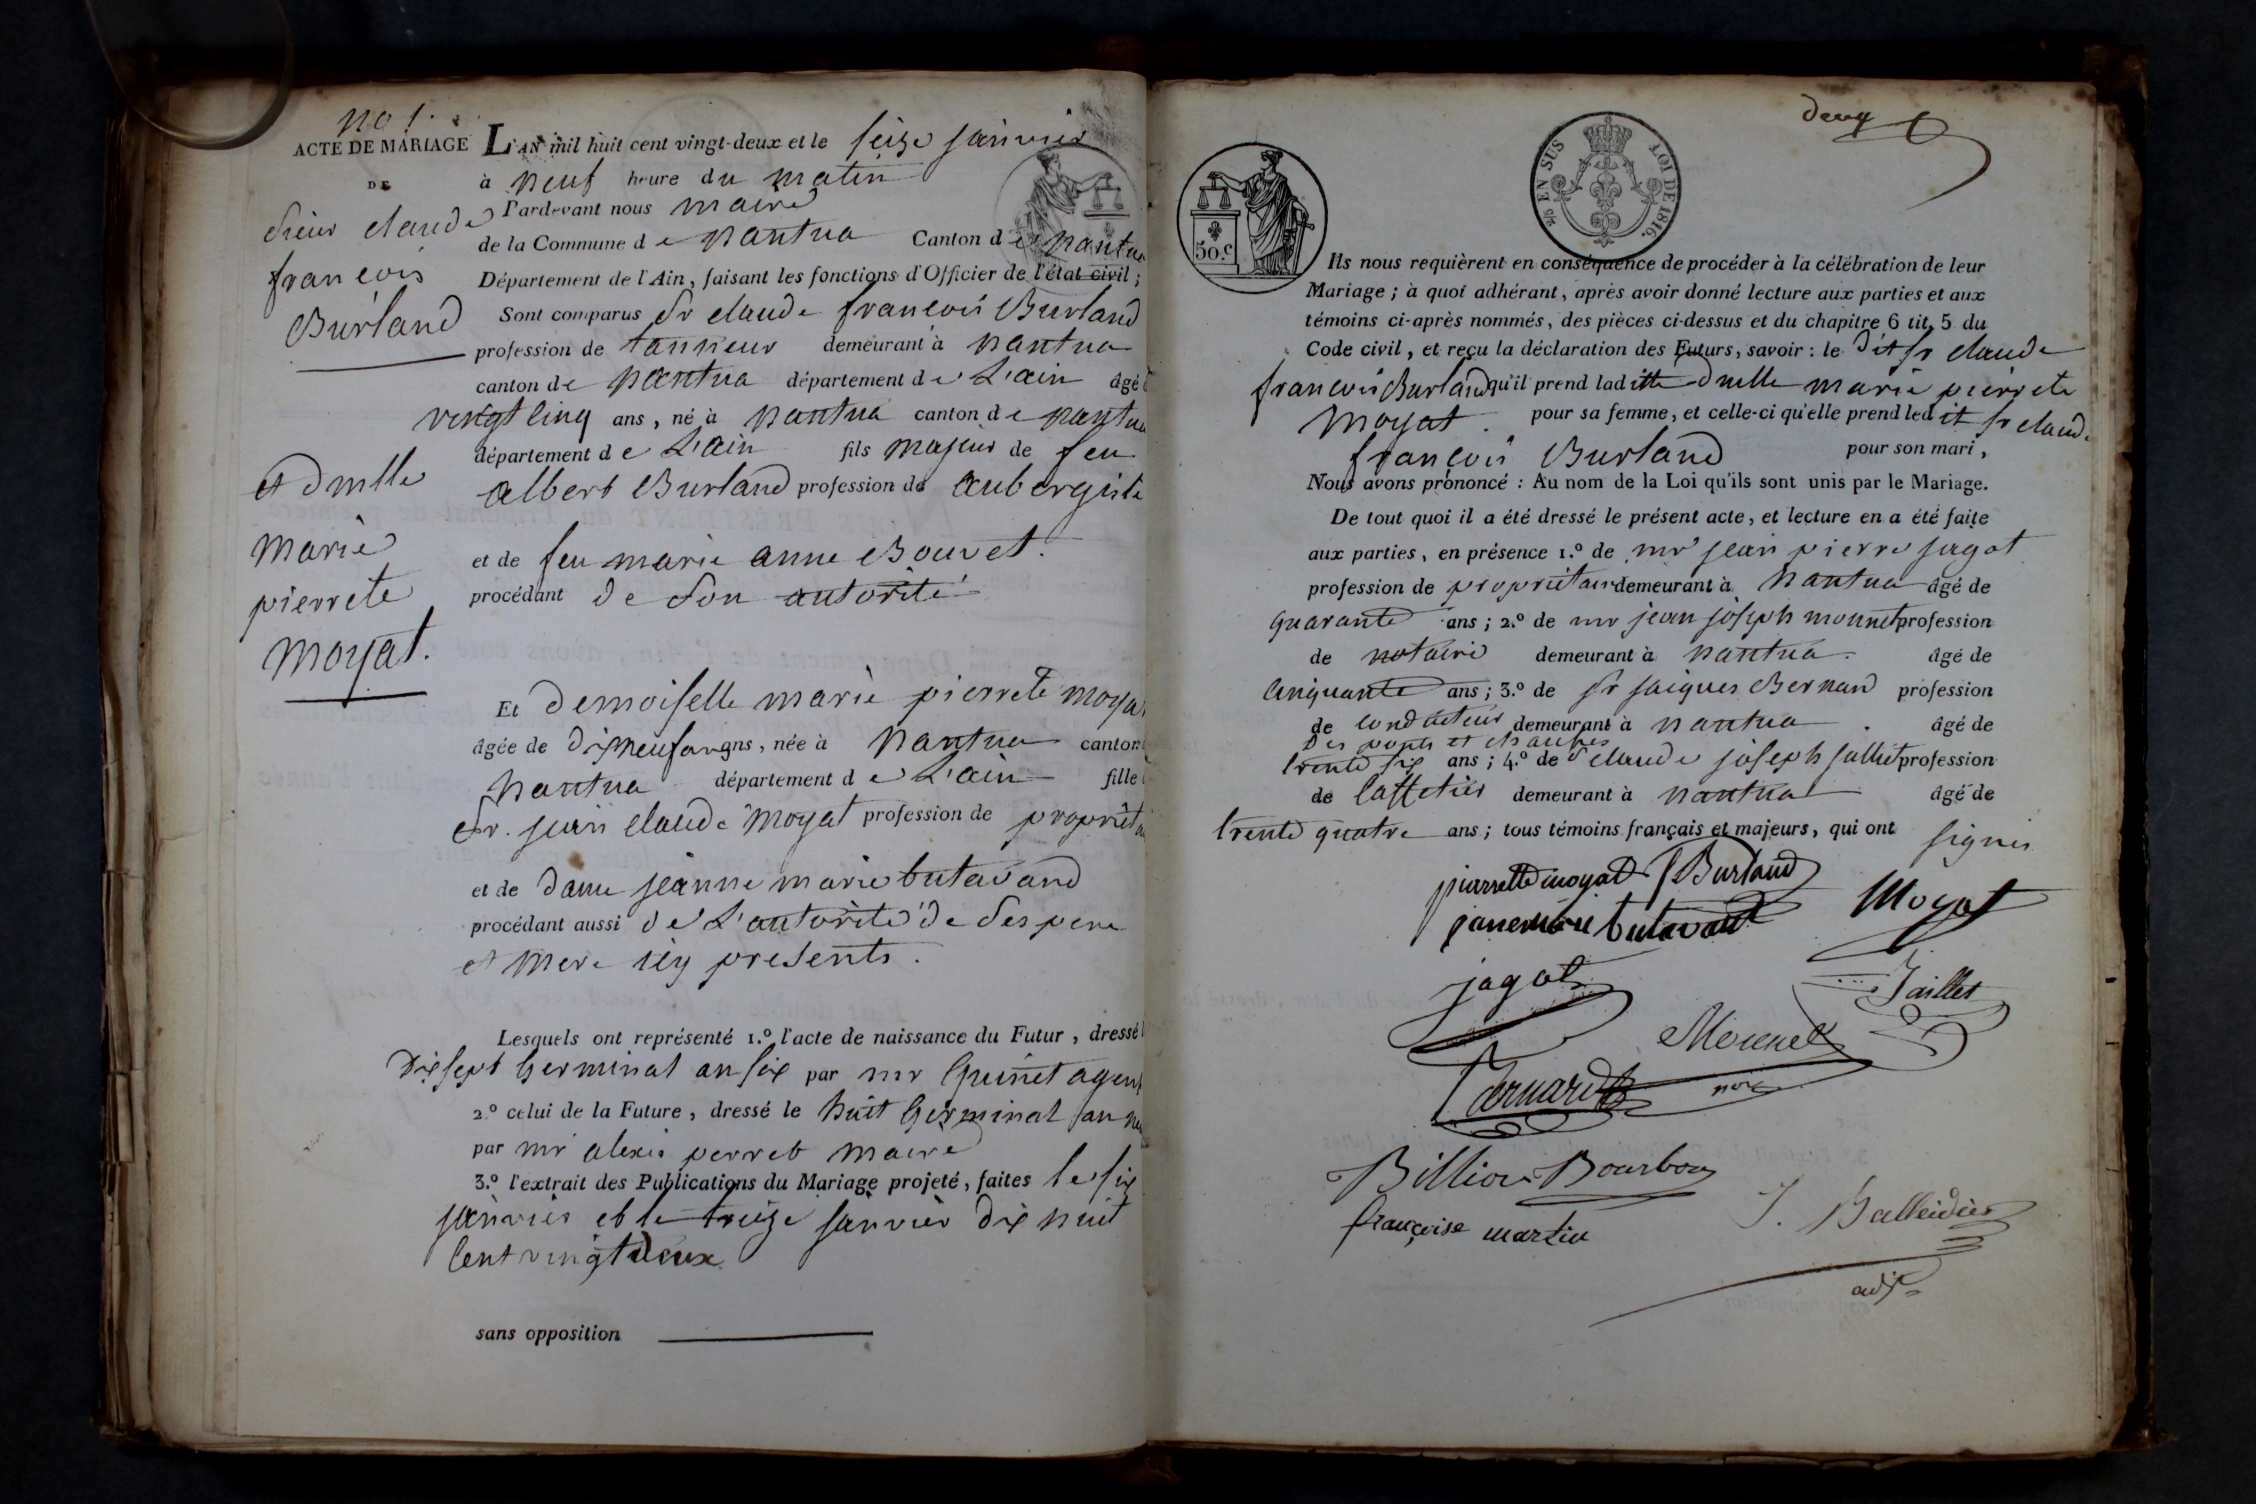 no 1.
ACTE DE MARIAGE
DE
Sieur claude
françois
Burland
et dmlle
marie
pierrete
moyat.
L'AN mil huit cent vingt-deux et le seize janvier
à neuf heure du matin
Pardevant nous maire
de la Commune de nantua Canton de nantua
Département de l'Ain, faisant les fonctions d'Officier de l'état civil;
Sont comparus Sr claude françois Burland
profession de tanneur demeurant à nantua
canton de nantua département de L'ain âgé d
vingt cinq ans, né à nantua canton de nantua
département de L'ain fils majeur de feu
albert Burland profession de aubergiste
et de feu marie anne Bouvet.
procédant de Son autorité
Et Demoiselle marie pierrete moyat
âgée de dixneuf ans ans, née à nantua canton
nantua département de L'ain fille
Sr. jean claude moyat profession de proprieta
et de dame jeanne marie butavand
procédant aussi de L'autorité de Ses pere
et mere icy presents.
Lesquels ont représenté 1.º l'acte de naissance du Futur, dressé
dix sept Germinal an six par mr Guinet agent
2.º celui de la Future, dressé le huit Germinal an
par mr alexis perret maire
3.º l'extrait des Publications du Mariage projeté, faites le six
janvier et le treize janvier dix huit
Cent vingt deux
sans opposition
deux
50.C
EN SUS
LOI DE 1816.
Ils nous requièrent en conséquence de procéder à la célébration de leur
Mariage; à quoi adhérant, après avoir donné lecture aux parties et aux
témoins ci-après nommés, des pièces ci-dessus et du chapitre 6 tit. 5 du
Code civil, et reçu la déclaration des Futurs, savoir: le dit Sr claude
françois Burland qu'il prend laditte dmelle marie pierrete
moyat. pour sa femme, et celle-ci qu'elle prend ledit Sr claude
françois Burland pour son mari,
Nous avons prononcé: Au nom de la Loi qu'ils sont unis par le Mariage.
De tout quoi il a été dressé le présent acte, et lecture en a été faite
aux parties, en présence 1.º de mr jean pierre jagot
profession de proprietaire demeurant à nantua âgé de
quarante ans; 2.º de mr jean joseph mounet profession
de notaire demeurant à nantua. âgé de
Cinquante ans; 3.º de Sr jaiques Bernard profession
de conducteur demeurant à nantua. âgé de
des ponts et chaussés
trente six ans; 4.º de S claude joseph jullet profession
de Caffetier demeurant à nantua âgé de
trente quatre ans; tous témoins français et majeurs, qui ont signés
pierrette moyat Burland
janemarie butavand
Moyat
jagot
Jaillet
Mounet
nore
Bernard
Billion Bourbon
françoise martin
J. Balleidier
adj.